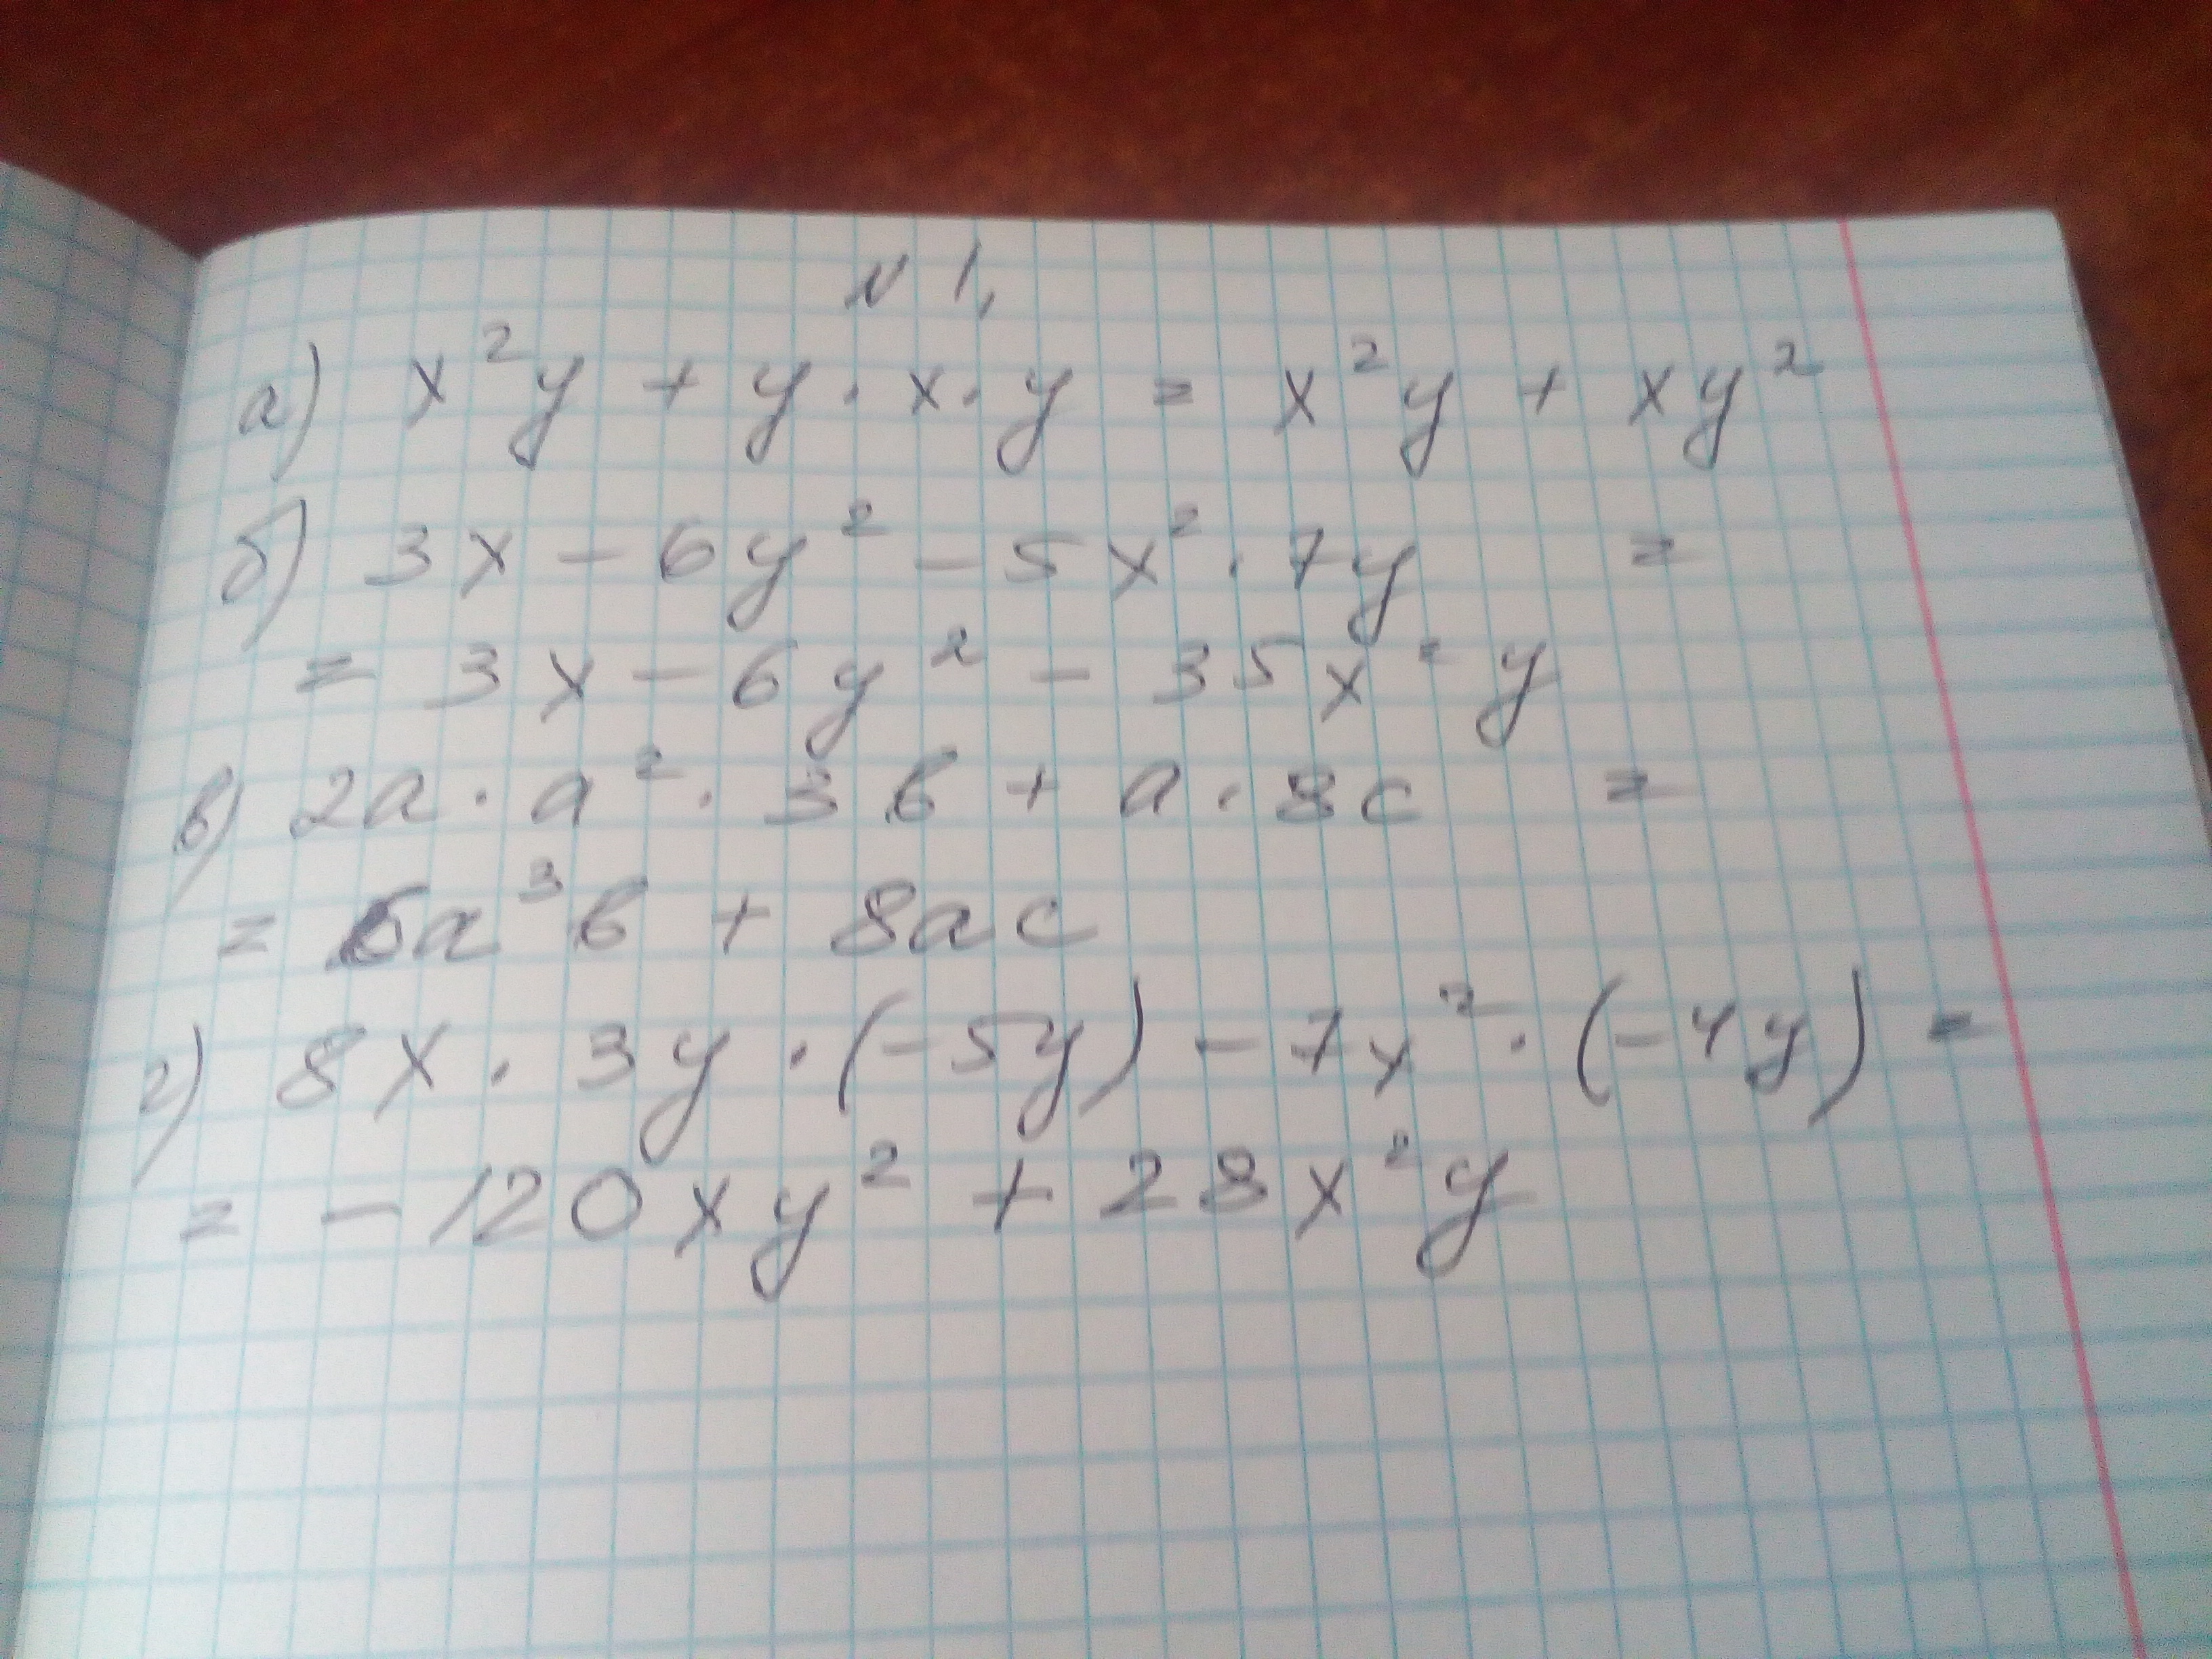 N 1.
а) x²y + y · x · y = x²y + xy²
б) 3x - 6y² - 5x² · 7y =
= 3x - 6y² - 35x²y
в) 2a · a² · 3b + a · 8c =
= 6a³b + 8ac
г) 8x · 3y · (-5y) - 7x² · (-4y) =
= -120xy² + 28x²y